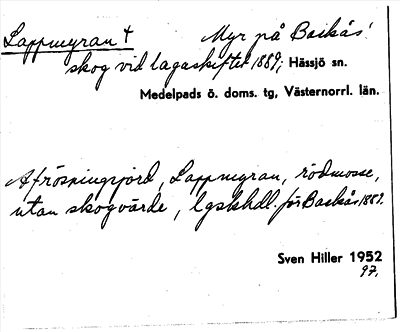 Lappmyran † Myr på Backås'
skog vid lagaskiftet 1889; Hässjö sn.
Medelpads ö. doms. tg, Västernorrl. län.
Afrösningsjord, Lappmyran, rödmosse,
utan skogvärde, lgskhdl. för Backås 1889.
Sven Hiller 1952
97.